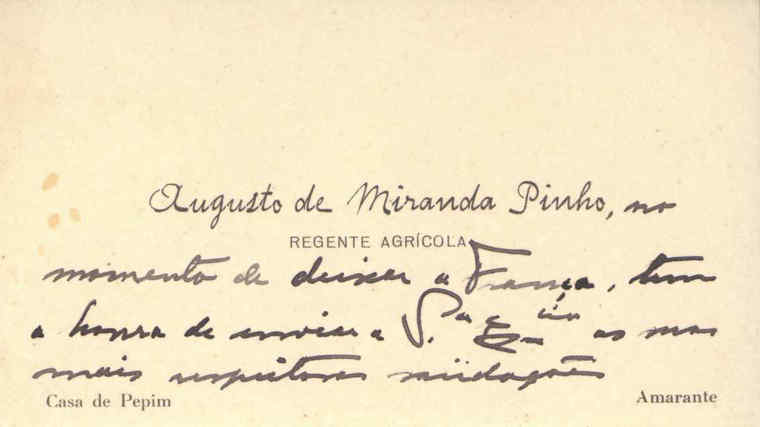 Augusto de Miranda Pinho, no
REGENTE AGRÍCOLA
momento de deixar a França, tem
a honra de enviar a as suas
mais respeitosas saüdações
Casa de Pepim
Amarante